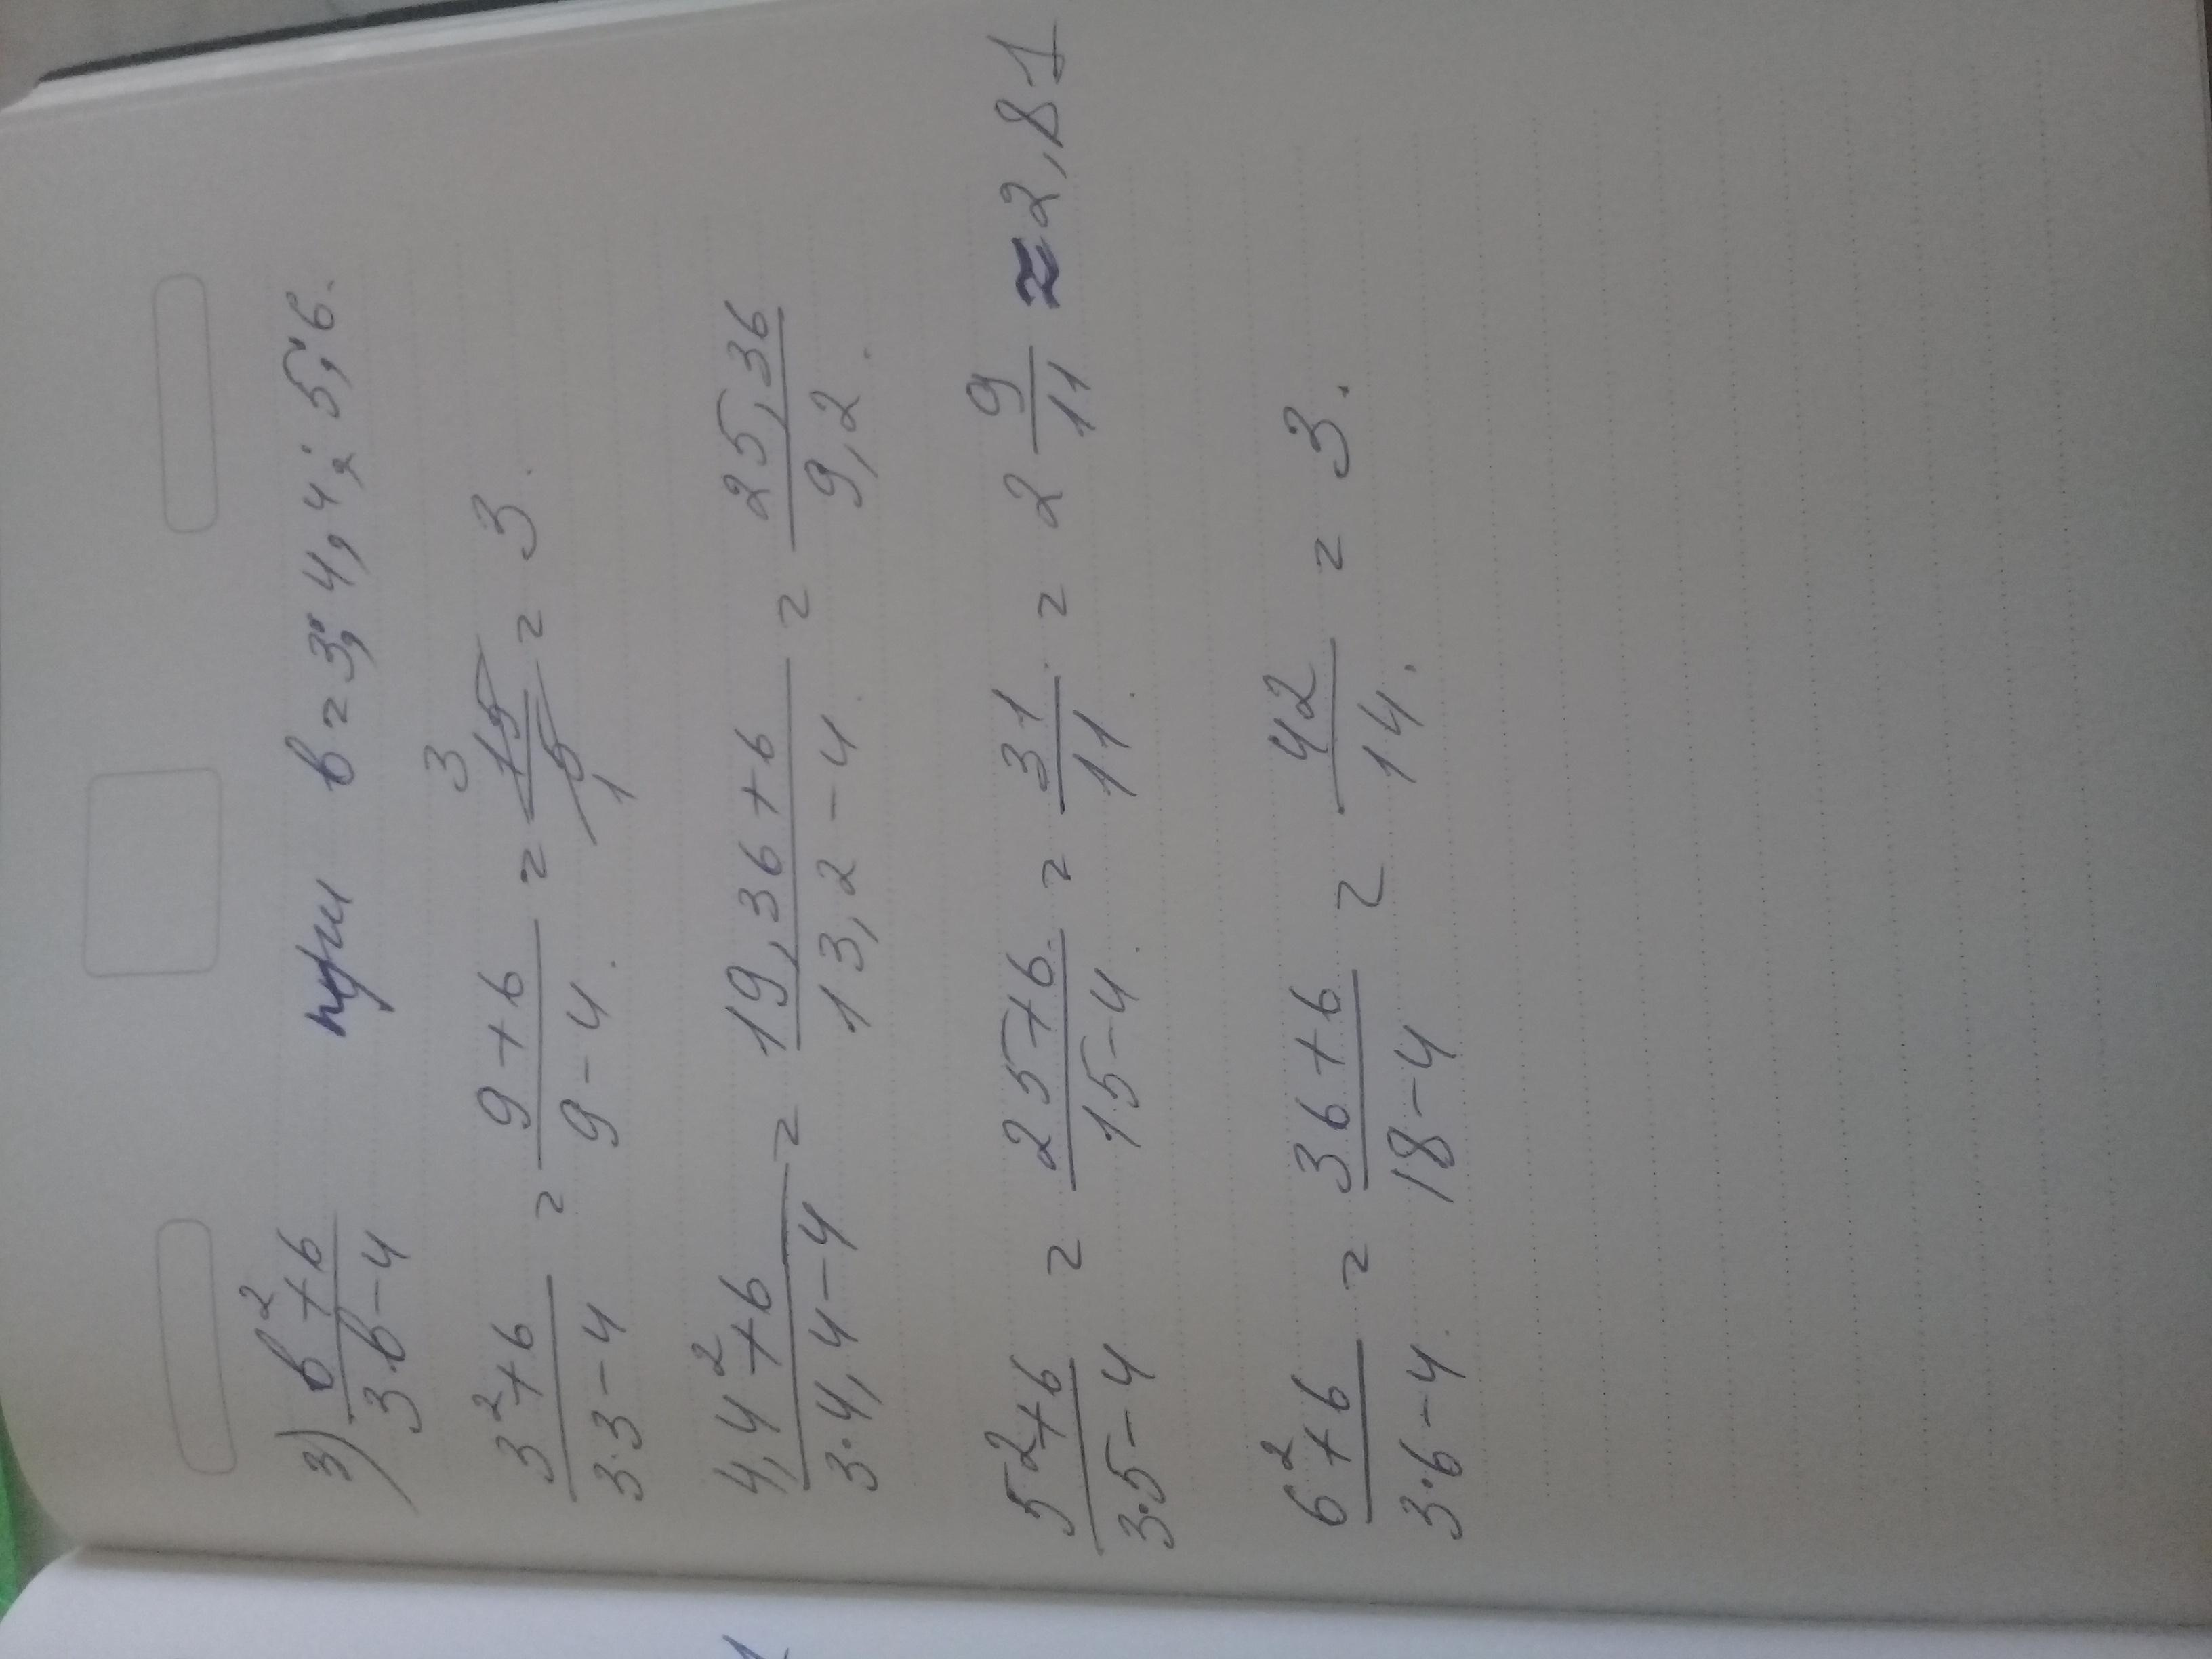 3) (в²+6)/(3·в-4) при в=3; 4,4; 5; 6.
(3²+6)/(3·3-4) = (9+6)/(9-4) = 15/5 3 1 = 3.
(4,4²+6)/(3·4,4-4) = (19,36+6)/(13,2-4) = 25,36/9,2
(5²+6)/(3·5-4) = (25+6)/(15-4) = 31/11 = 2 9/11 ≈ 2,81
(6²+6)/(3·6-4) = (36+6)/(18-4) = 42/14 = 3.